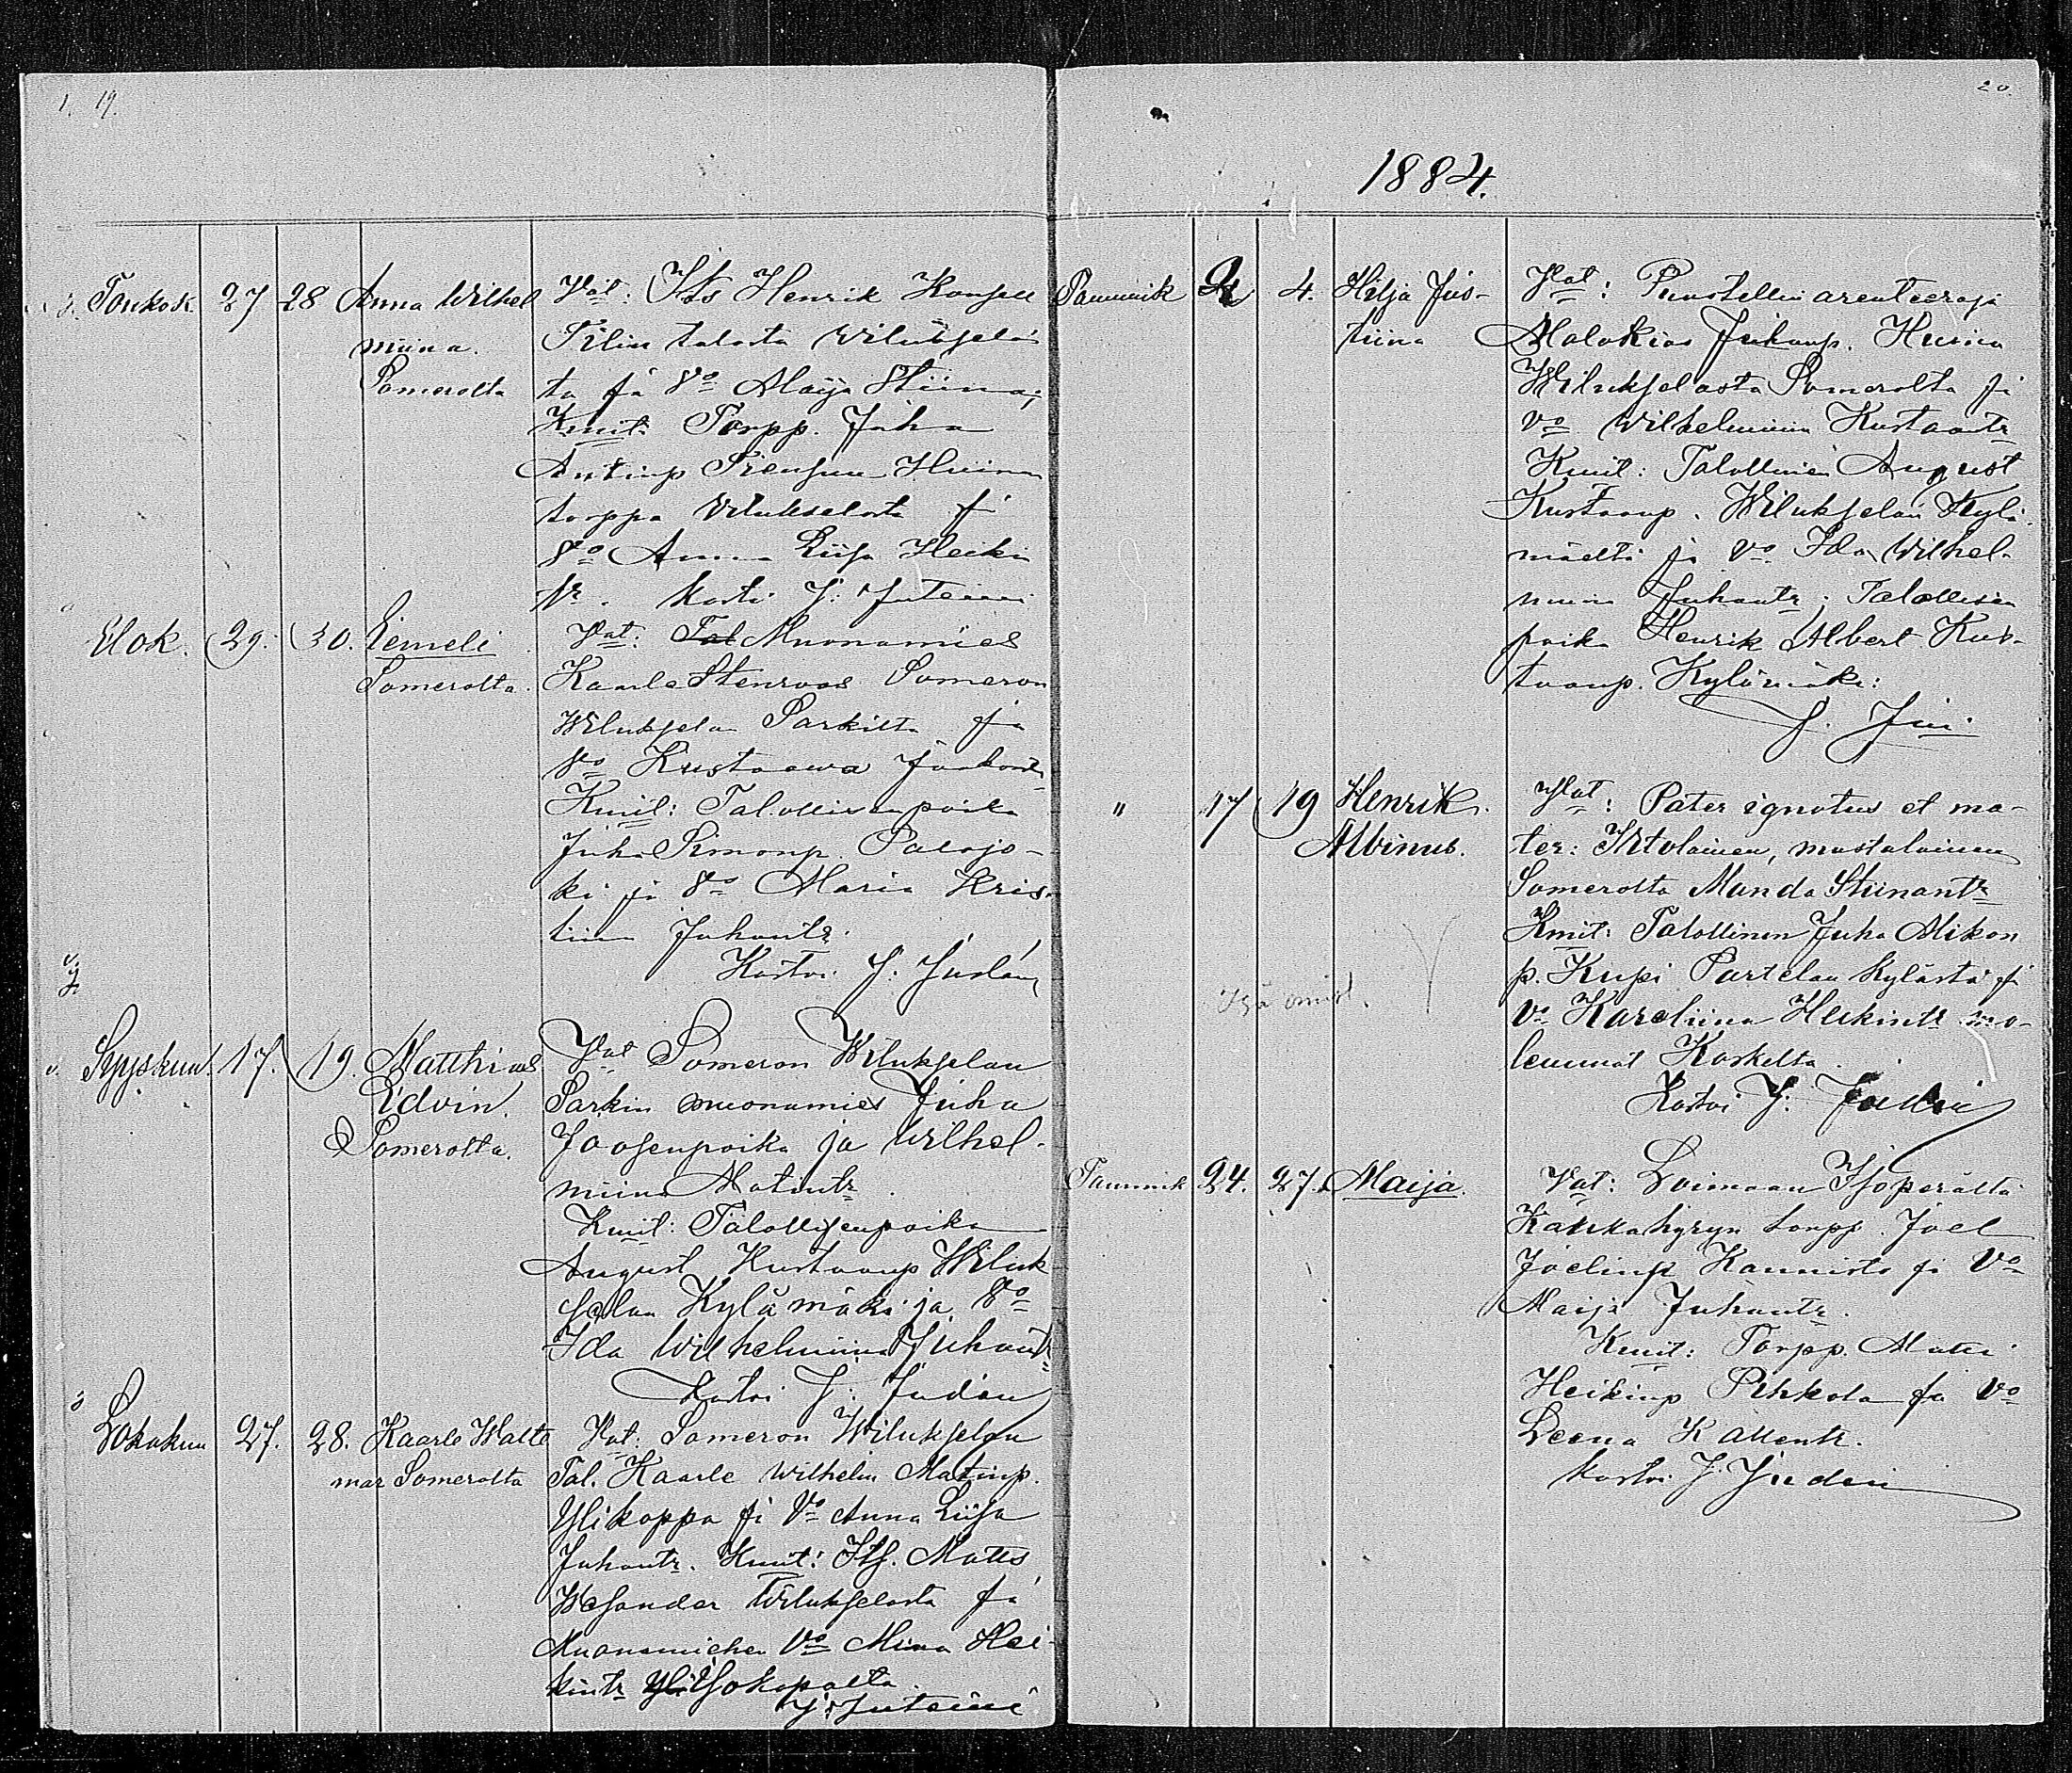 19.
Toukok. 27 28 Anna Wilhel
miina.
Somerolta
Vat: Its Henrik
Tilin talosta Wiluksjelas
ta ja Vo Maija Stiina,
Kmit: Torpp. Juha
Antinp Huina
torppa Wilukselasta ja
Vo Anna Liisa Heikin
tr. kastoi J:
Elok. 29. 30. Eemeli
Somerolta.
Vat: Tal Muonamies
Kaarle Stenroos Someron
Wiluksjelan Parkilta ja
Vo Kustaawa
Kmit: Talollisenpoika
Juha Simonp. Palojo-
ki ja Vo Maria Kris-
tiina Juhontr.
Kastoi J:
Syyskuu. 17. 19. Matthias
Edvin.
Somerolta.
Vat Someron Wiluksjelan
Parkin muonamies Juha
Joosenpoika ja Wilhel-
miina Matintr
Kmit: Talollisenpoika
August Kustaanp Wiluk
sjelan Kylämäki ja Vo
Ida Wilhelmiina Juhont
Kastoi J: Juden
Lokakuu 27. 28. Kaarle Walte
mar Somerolta
Vat: Someron Wiluksjelan
Tal. Kaarle Wilhelm Matinp.
Ylikoppa ja Vo Anna Liisa
Juhontr. Kmit: Its. Matts
Wesander Wiluksjelasta ja
Muonamiehen Vo Miina Hei-
kintr
20.
1884.
Tammik 2 4. Hilja Jus-
tiina
Vat: Puustellin arenteeraja
Malakias Juhanp. Huina
Wiluksjelasta Somerolta ja
Vo Wilhelmiina Kustaantr
Kmit: Talollinen August
Kustaanp. Wiluksjelan Kylä-
mäeltä ja Vo Ida Wilhel-
miina Juhontr; Talollisen
poika Henrik Albert Kus-
taanp. Kylämäki:
" 17 19 Henrik
Albinus.
Vat: Pater ignotus et ma-
ter: Itstolainen, mustalainen
Somerolta Manda Stiinantr
Kmit: Talollinen Juha Mikon
p. Kupi Partelan kylästä ja
Vo Karoliina Heikintr mo-
lemmat Koskelta.
Kastoi J: Juden
Tammik 24. 27. Maija.
Vat: Loimaan Isoperältä
torpp. Joel
Joelinp Kannisto ja Vo
Maija Juhontr.
Kmit: Torpp. Matti
Heikinp Pihkola ja Vo
Leena Kallentr.
kastoi J. Juden